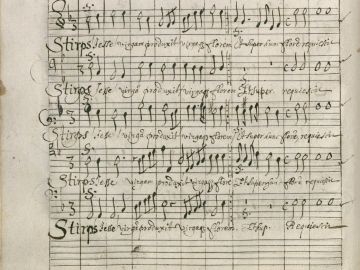 Stirps Jesse virgam produxit virgaq; florem Et super hunc florē requiescit
Stirps Jesse virgā produxit virgaq; florem Et super requiescit
Stirps Jesse virgā produxit virgaq; florem Et super hunc florē requiescit
Stirps Jesse virgam produxit virgaq; florem Et super hunc florē requiescit
Stirps Jesse virgam produxit virgaq; florem Et sup. Requiescit